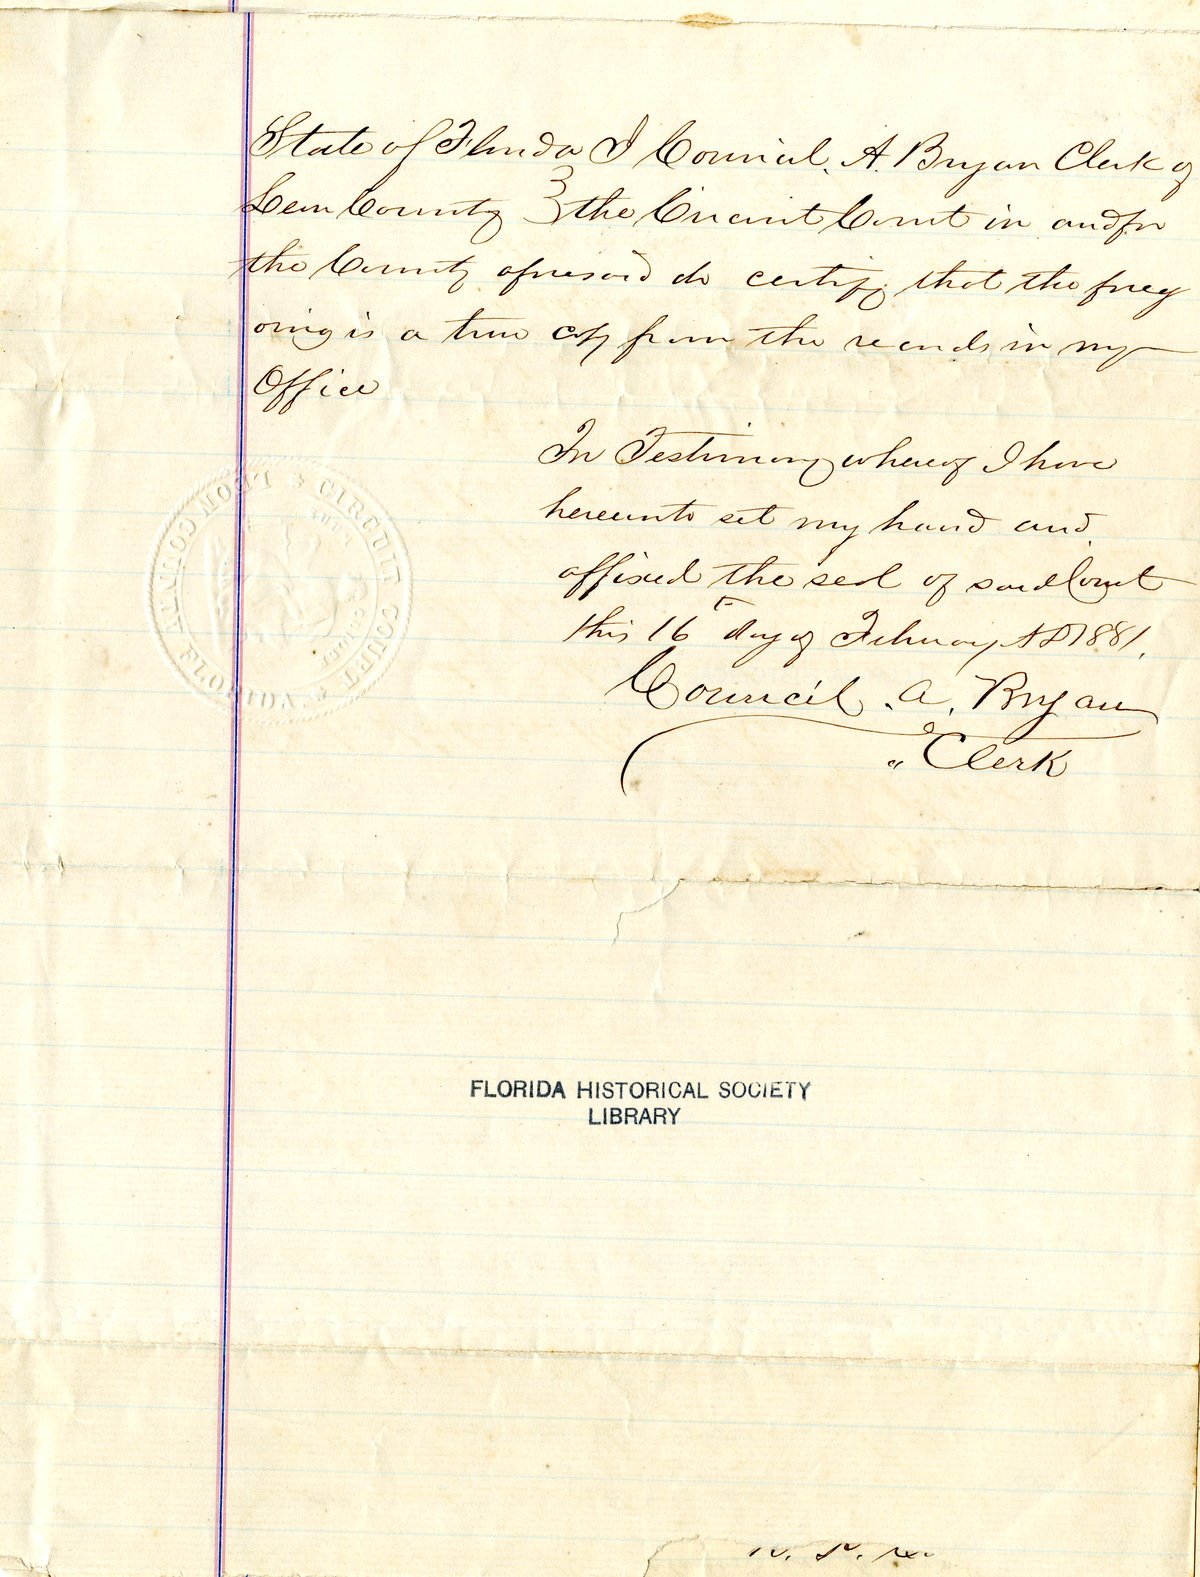 State of Florida I Council. A. Bryan Clerk of
Leon County } the Circuit Court in and for
the County aforesaid do certify that the foreg
oing is a true copy from the records in my
Office
In Testimony whereof I have
hereunto set my hand and
affixed the seal of said Court
this 16th day of February AD 1881.
Council . A. Bryan
" Clerk
LEON COUNTY FLORIDA * CIRCUIT COURT *
FLORIDA HISTORICAL SOCIETY
LIBRARY